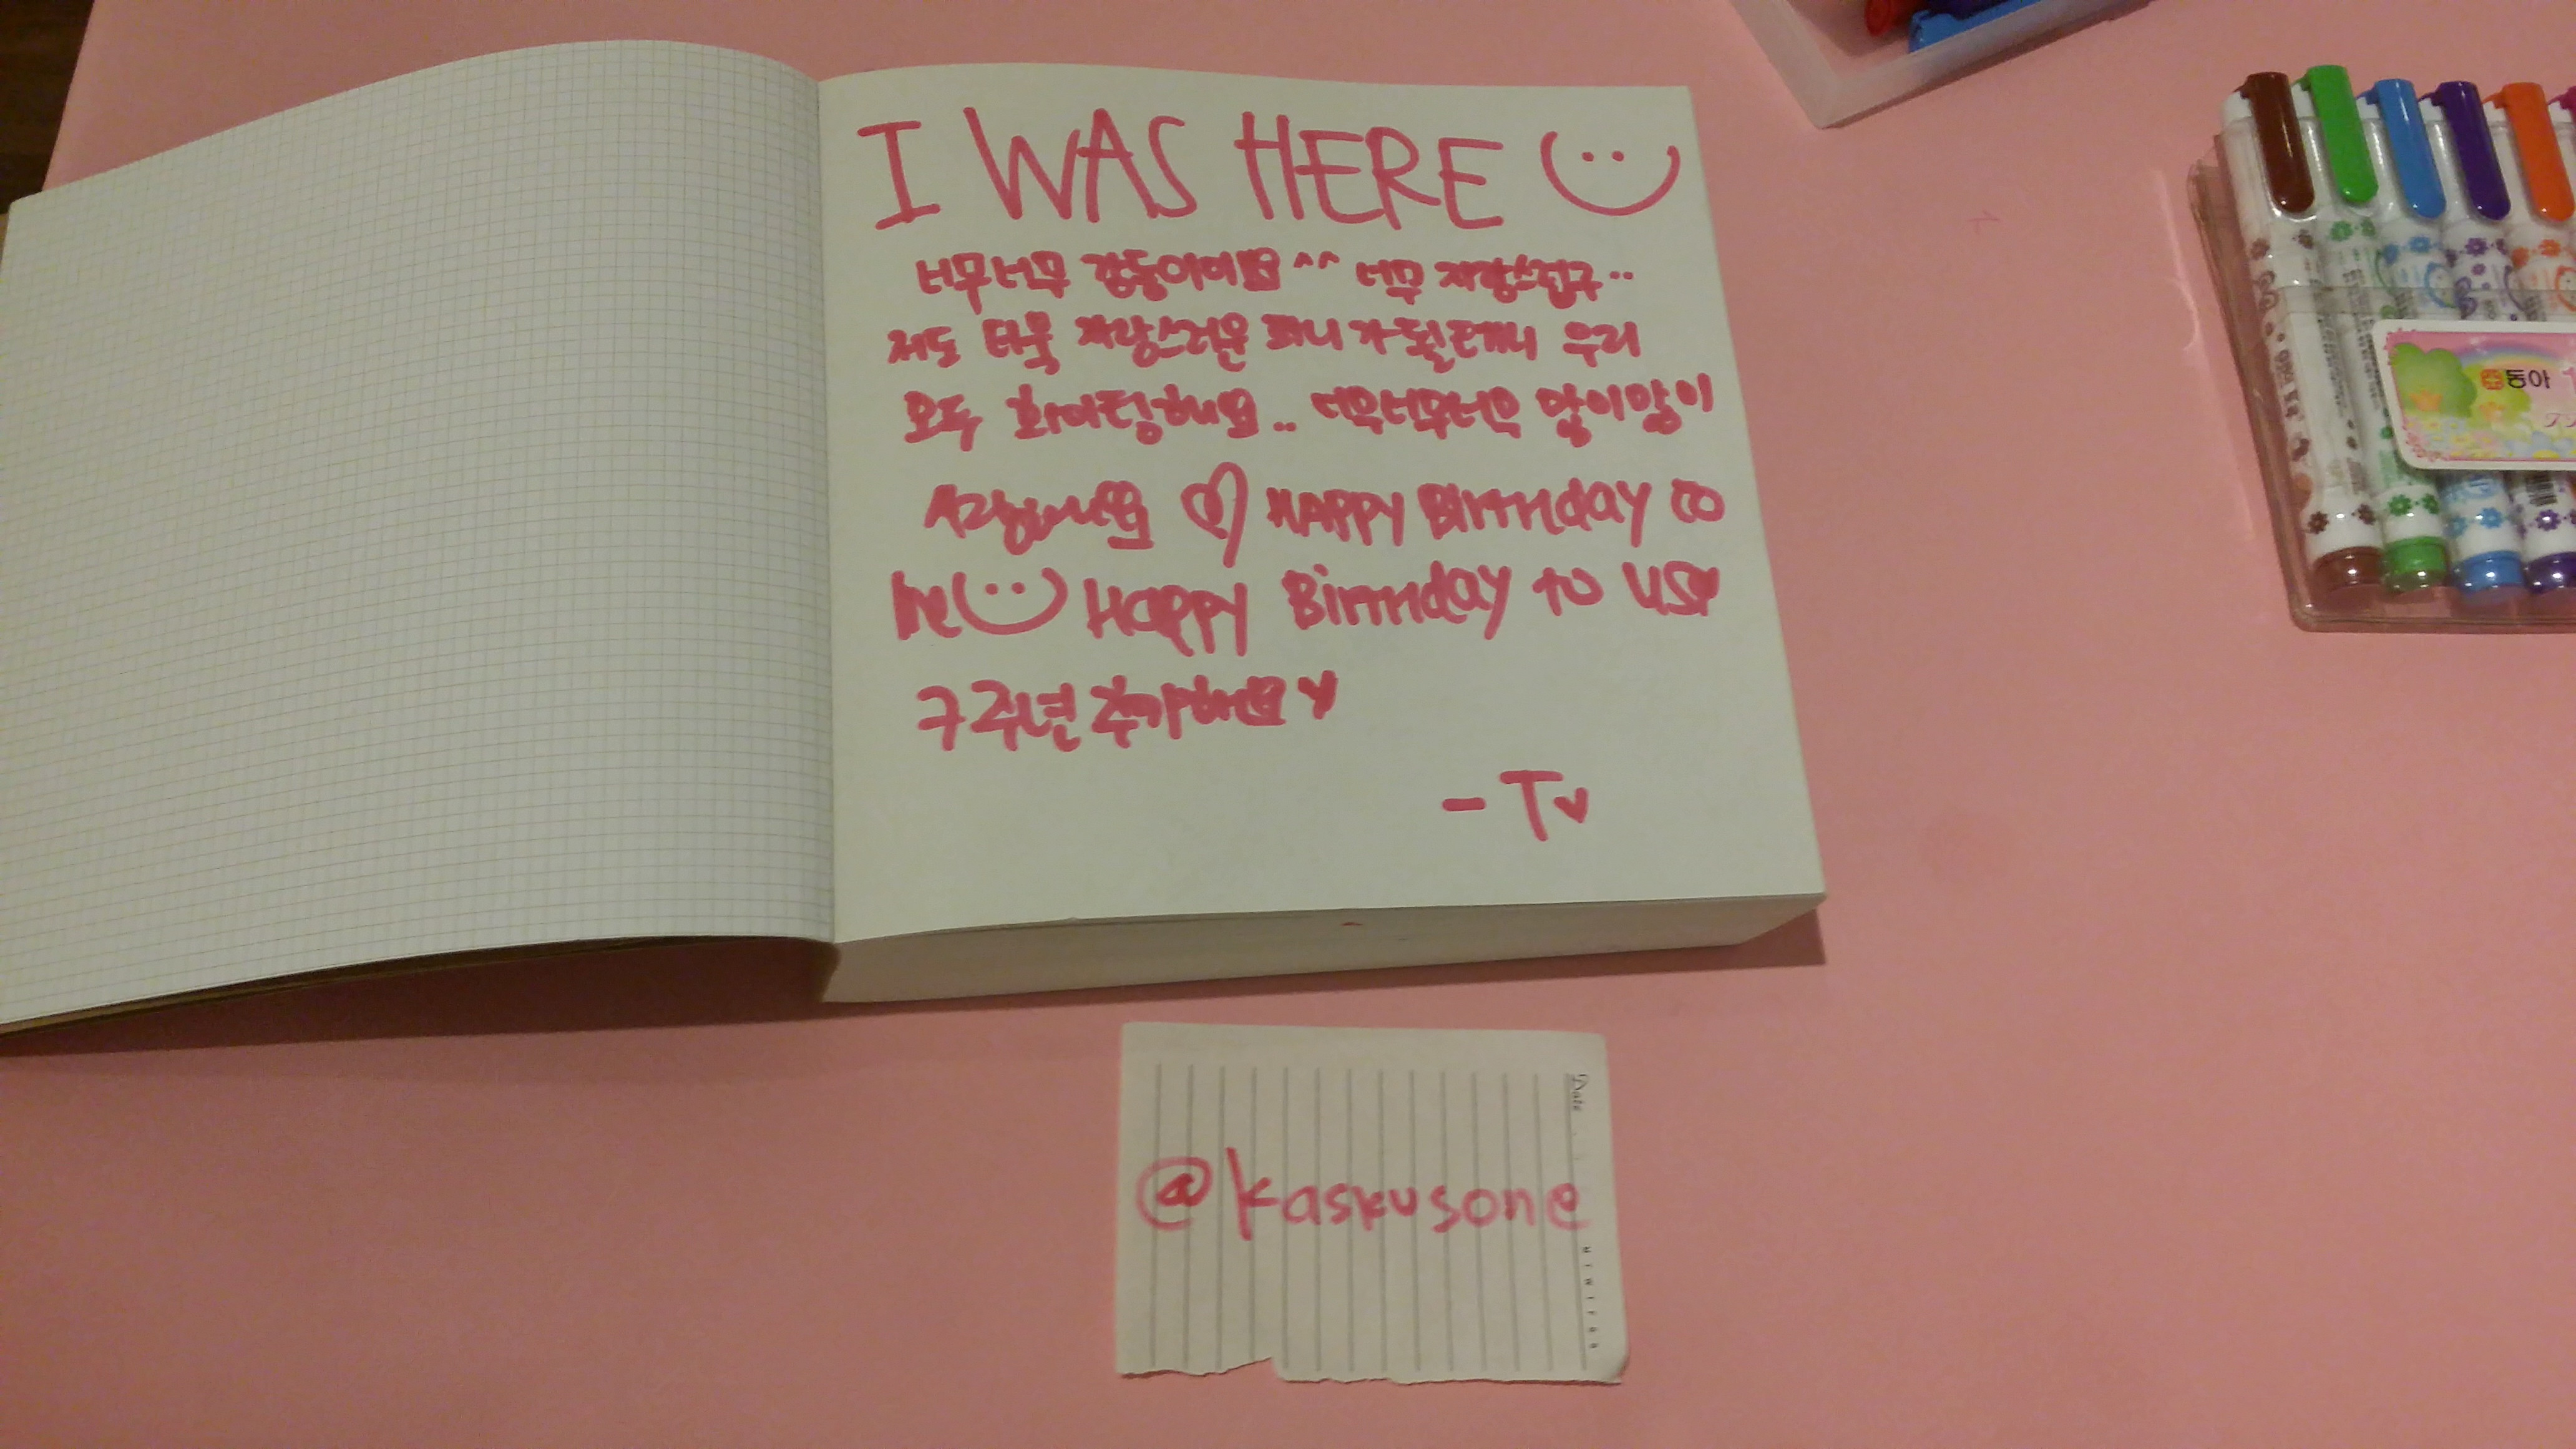 I WAS HERE
너무너무 감동이에요 ^^ 너무 자랑스럽구..
저도 더욱 자랑스러운 파니가 될테니 우리
모두 화이팅해요.. 너무너무너무 많이많이
사랑해요 ♡ HAPPY Birthday to
me Happy Birthday to us♥
7주년 축하해요♥
- T♥
@kaskusone
Date
동아